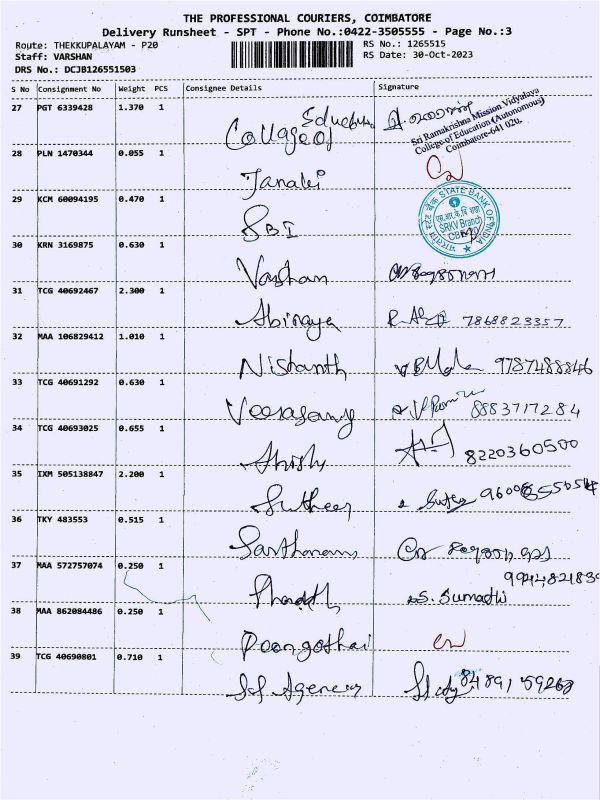 THE PROFESSIONAL COURIERS, COIMBATORE
Delivery Runsheet - SPT - Phone No.:0422-3505555 - Page No.:3
Route: THEKKUPALAYAM - P20 RS No.: 1265515
Staff: VARSHAN RS Date: 30-Oct-2023
DRS No.: DCJB126551503
S No Consignment No Weight PCS Consignee Details Signature
27 PGT 6339428 1.370 1 College of Education
Sri Ramakrishna Mission Vidyalaya
College of Education (Autonomous)
Coimbatore-641 020.
28 PLN 1470344 0.055 1 Janaki
29 KCM 60094195 0.470 1 SBI
STATE BANK OF INDIA
SRKV Branch
CBE
30 KRN 3169875 0.630 1 Varshan
31 TCG 40692467 2.300 1 Abinaya 7868823357
32 MAA 106829412 1.010 1 Nishanth 9787488846
33 TCG 40691292 0.630 1 8883717284
34 TCG 40693025 0.655 1 8220360500
35 IXM 505138847 2.200 1
36 TKY 483553 0.515 1
37 MAA 572757074 0.250 1 S. Sumathi
38 MAA 862084486 0.250 1 Poongothai
39 TCG 40690801 0.710 1 Agencies